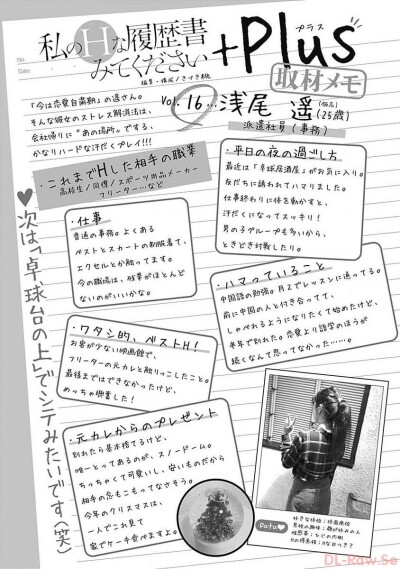 No.
Date
私のHな履歴書
みてください
+Plus
プラス
編集・構成/きづき桃
取材メモ
「今は恋愛自粛期」の遥さん。
そんな彼女のストレス解消法は、
会社帰りに“あの場所”でする、
かなりハードな汗だくプレイ!!!
Vol. 16…浅尾 遥(仮名)(25歳)
派遣社員(事務)
・これまでHした相手の職業
高校生/同僚/スポーツ用品メーカー
フリーター…など
・平日の夜の過ごし方
最近は「卓球居酒屋」がお気に入り。
友だちに誘われてハマりました。
仕事終わりに体を動かすと、
汗だくになってスッキリ!
男の子グループも多いから、
ときどき対戦したり。
・仕事
普通の事務。よくある
ベストとスカートの制服着て、
エクセルとか触ってます。
今の職場は、残業がほとんど
ないのがいいかな。
・ハマっていること
中国語の勉強。月2でレッスンに通ってる。
前に中国の人と付き合ってて、
しゃべれるようになりたくて始めたけど、
半年で別れた。恋愛より語学のほうが
続くなんて思ってなかった……。
・ワタシ的、ベストH!
お客が少ない映画館で、
フリーターの元カレと触りっこしたこと。
最後まではできなかったけど、
めっちゃ興奮した!
・元カレからのプレゼント
別れたら基本捨てるけど、
唯一とってあるのが、スノードーム。
ちっちゃくて可愛いし、安いものだから
相手の念もこもってなさそう。
今年のクリスマスは、
一人でこれ見て
家でケーキ食べますよ。
♥次は「卓球台の上」でシテみたいです(笑)
Data♥
好きな体位:後背座位
男性の趣味:鼻が好みの人
性感帯:ヒジの内側
DL-Raw.Se